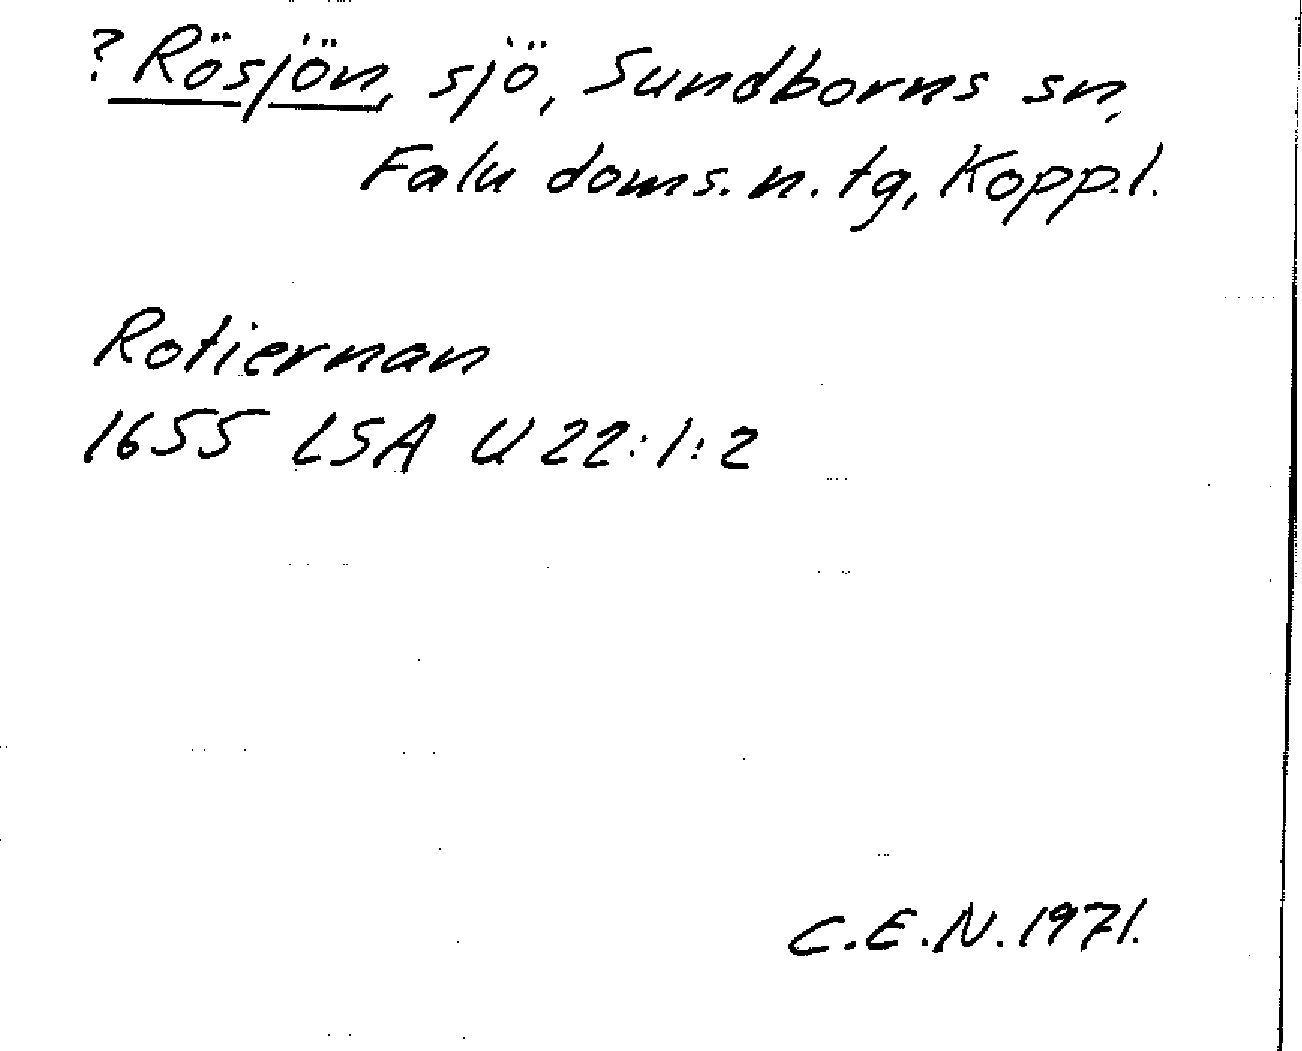 ? Rösjön, sjö, Sundborns sn,
Falu doms. n. tg, Kopp.l.
Rotiernan
1655 LSA U 22:1:2
C.E.N. 1971.